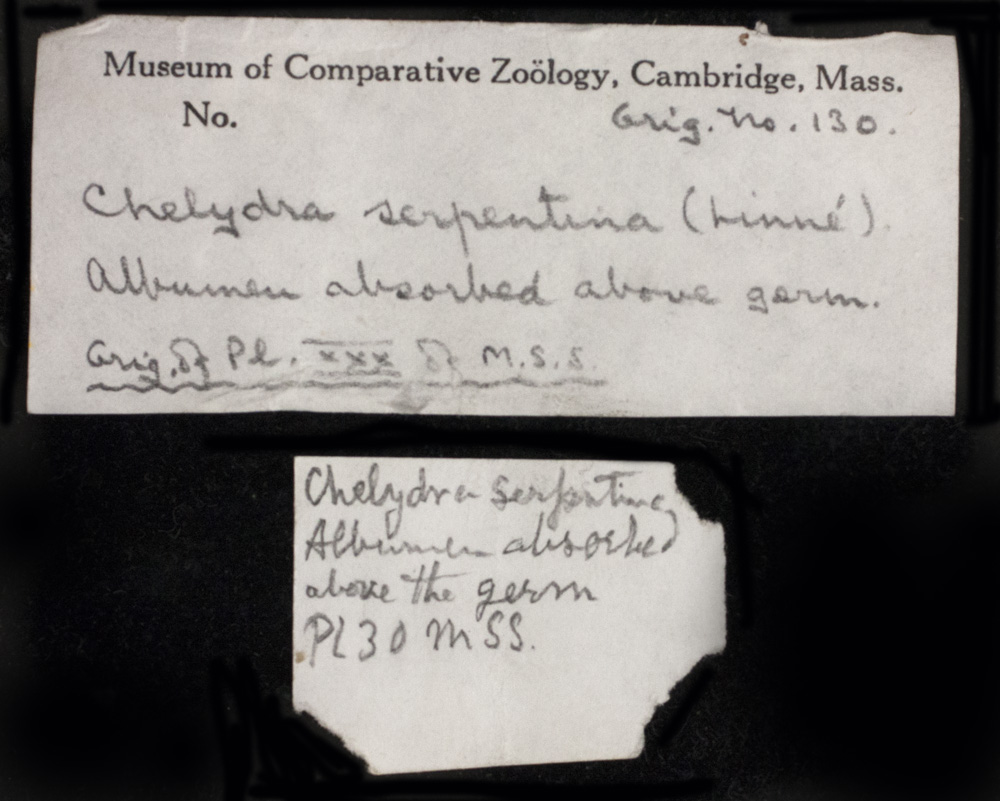 Museum of Comparative Zoölogy, Cambridge, Mass.
No. Orig. No. 130.
Chelydra serpentina (Linné).
Albumen absorbed above germ.
Orig. of Pl. XXX of M.S.S.
Chelydra serpentina
Albumen absorbed
above the germ
Pl 30 MSS.